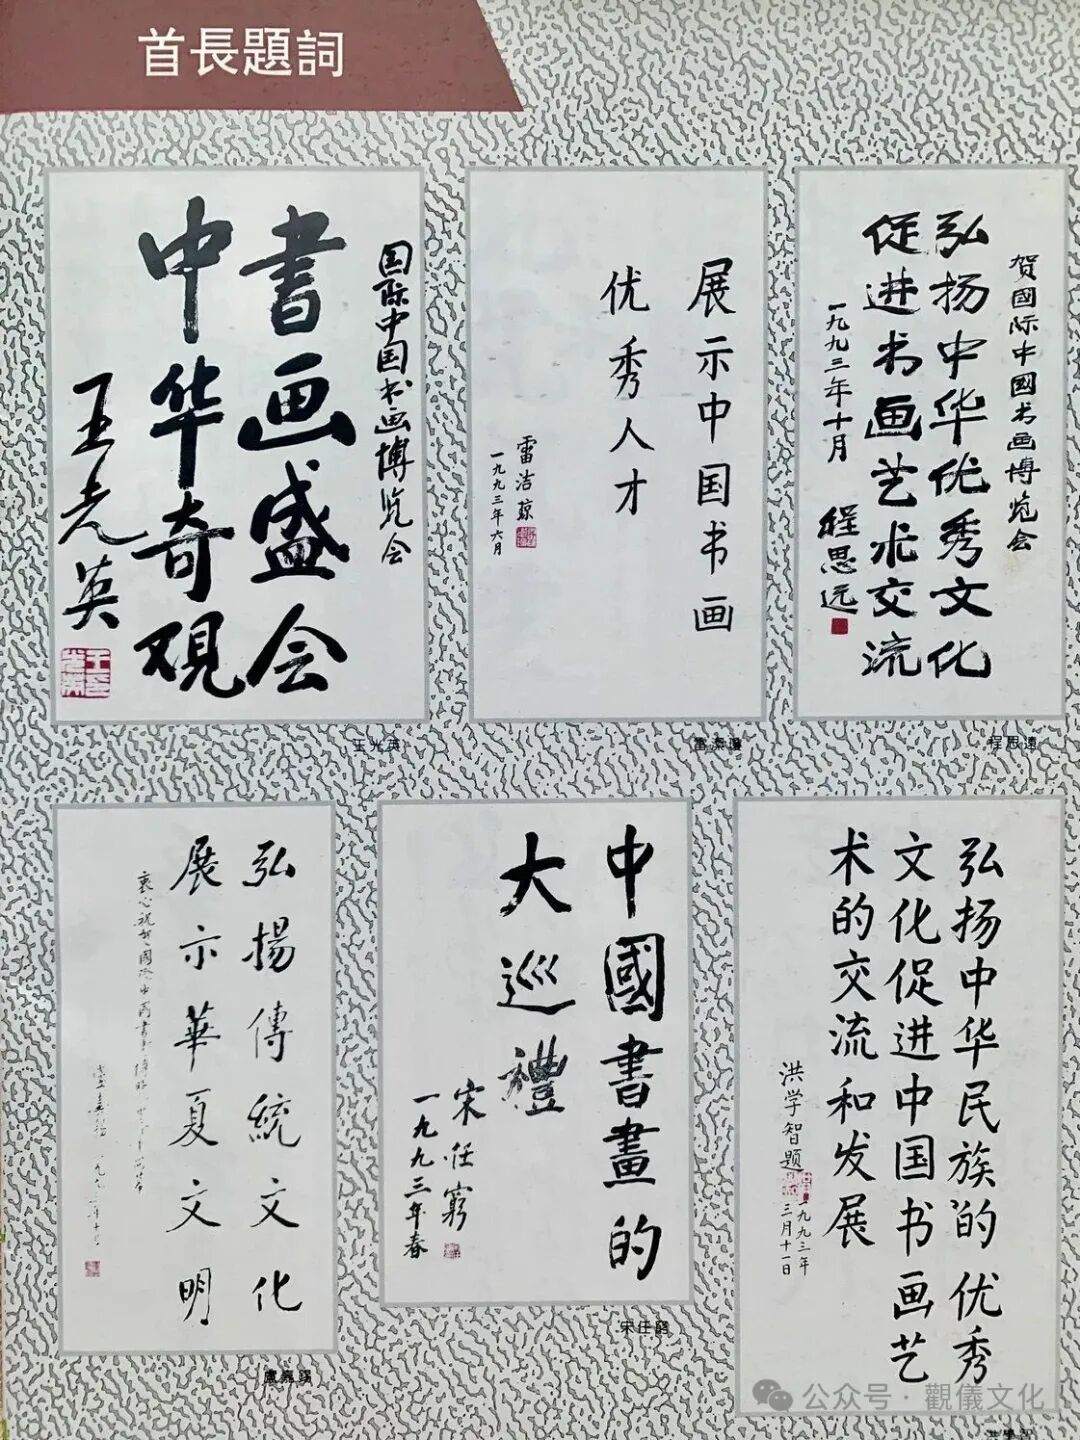 首長題詞
国际中国书画博览会
書画盛会
中华奇观
王光英
王光英
展示中国书画
优秀人才
雷洁琼
一九九三年六月
雷潔瓊
贺國际中國书画博览会
弘扬中华优秀文化
促进书画艺术交流
一九九三年十月
程思远
程思遠
弘揚傳統文化
展示華夏文明
盧嘉錫
中國書畫的
大巡禮
宋任穷
一九九三年春
宋任窮
弘扬中华民族的优秀
文化促进中国书画艺
术的交流和发展
洪学智题
一九九三年
三月十一日
洪學智
公众号·觀儀文化